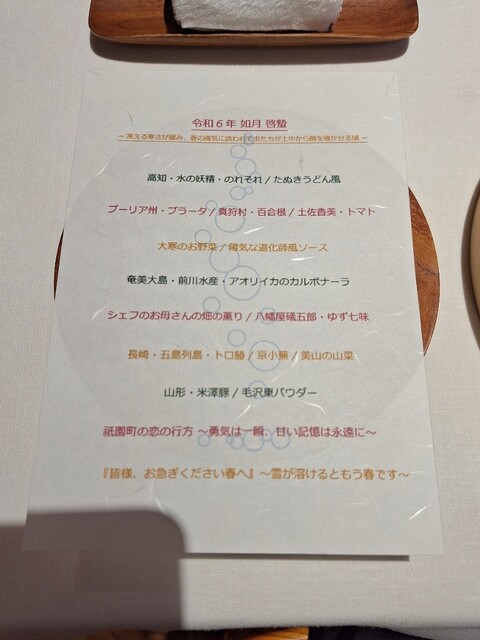 令和６年 如月 啓蟄
～ 凍える寒さが緩み、春の陽気に誘われて虫たちが土中から顔を覗かせる頃 ～
高知・水の妖精・のれそれ / たぬきうどん風
プーリア州・ブラータ / 真狩村・百合根 / 土佐香美・トマト
大寒のお野菜 / 陽気な道化師風ソース
奄美大島・前川水産・アオリイカのカルボナーラ
シェフのお母さんの畑の薫り / 八幡屋礒五郎・ゆず七味
長崎・五島列島・トロ鰆 / 京小蕪 / 美山の山菜
山形・米澤豚 / 毛沢東パウダー
祇園町の恋の行方 ～勇気は一瞬、甘い記憶は永遠に～
『皆様、お急ぎください春へ』～雪が溶けるともう春です～